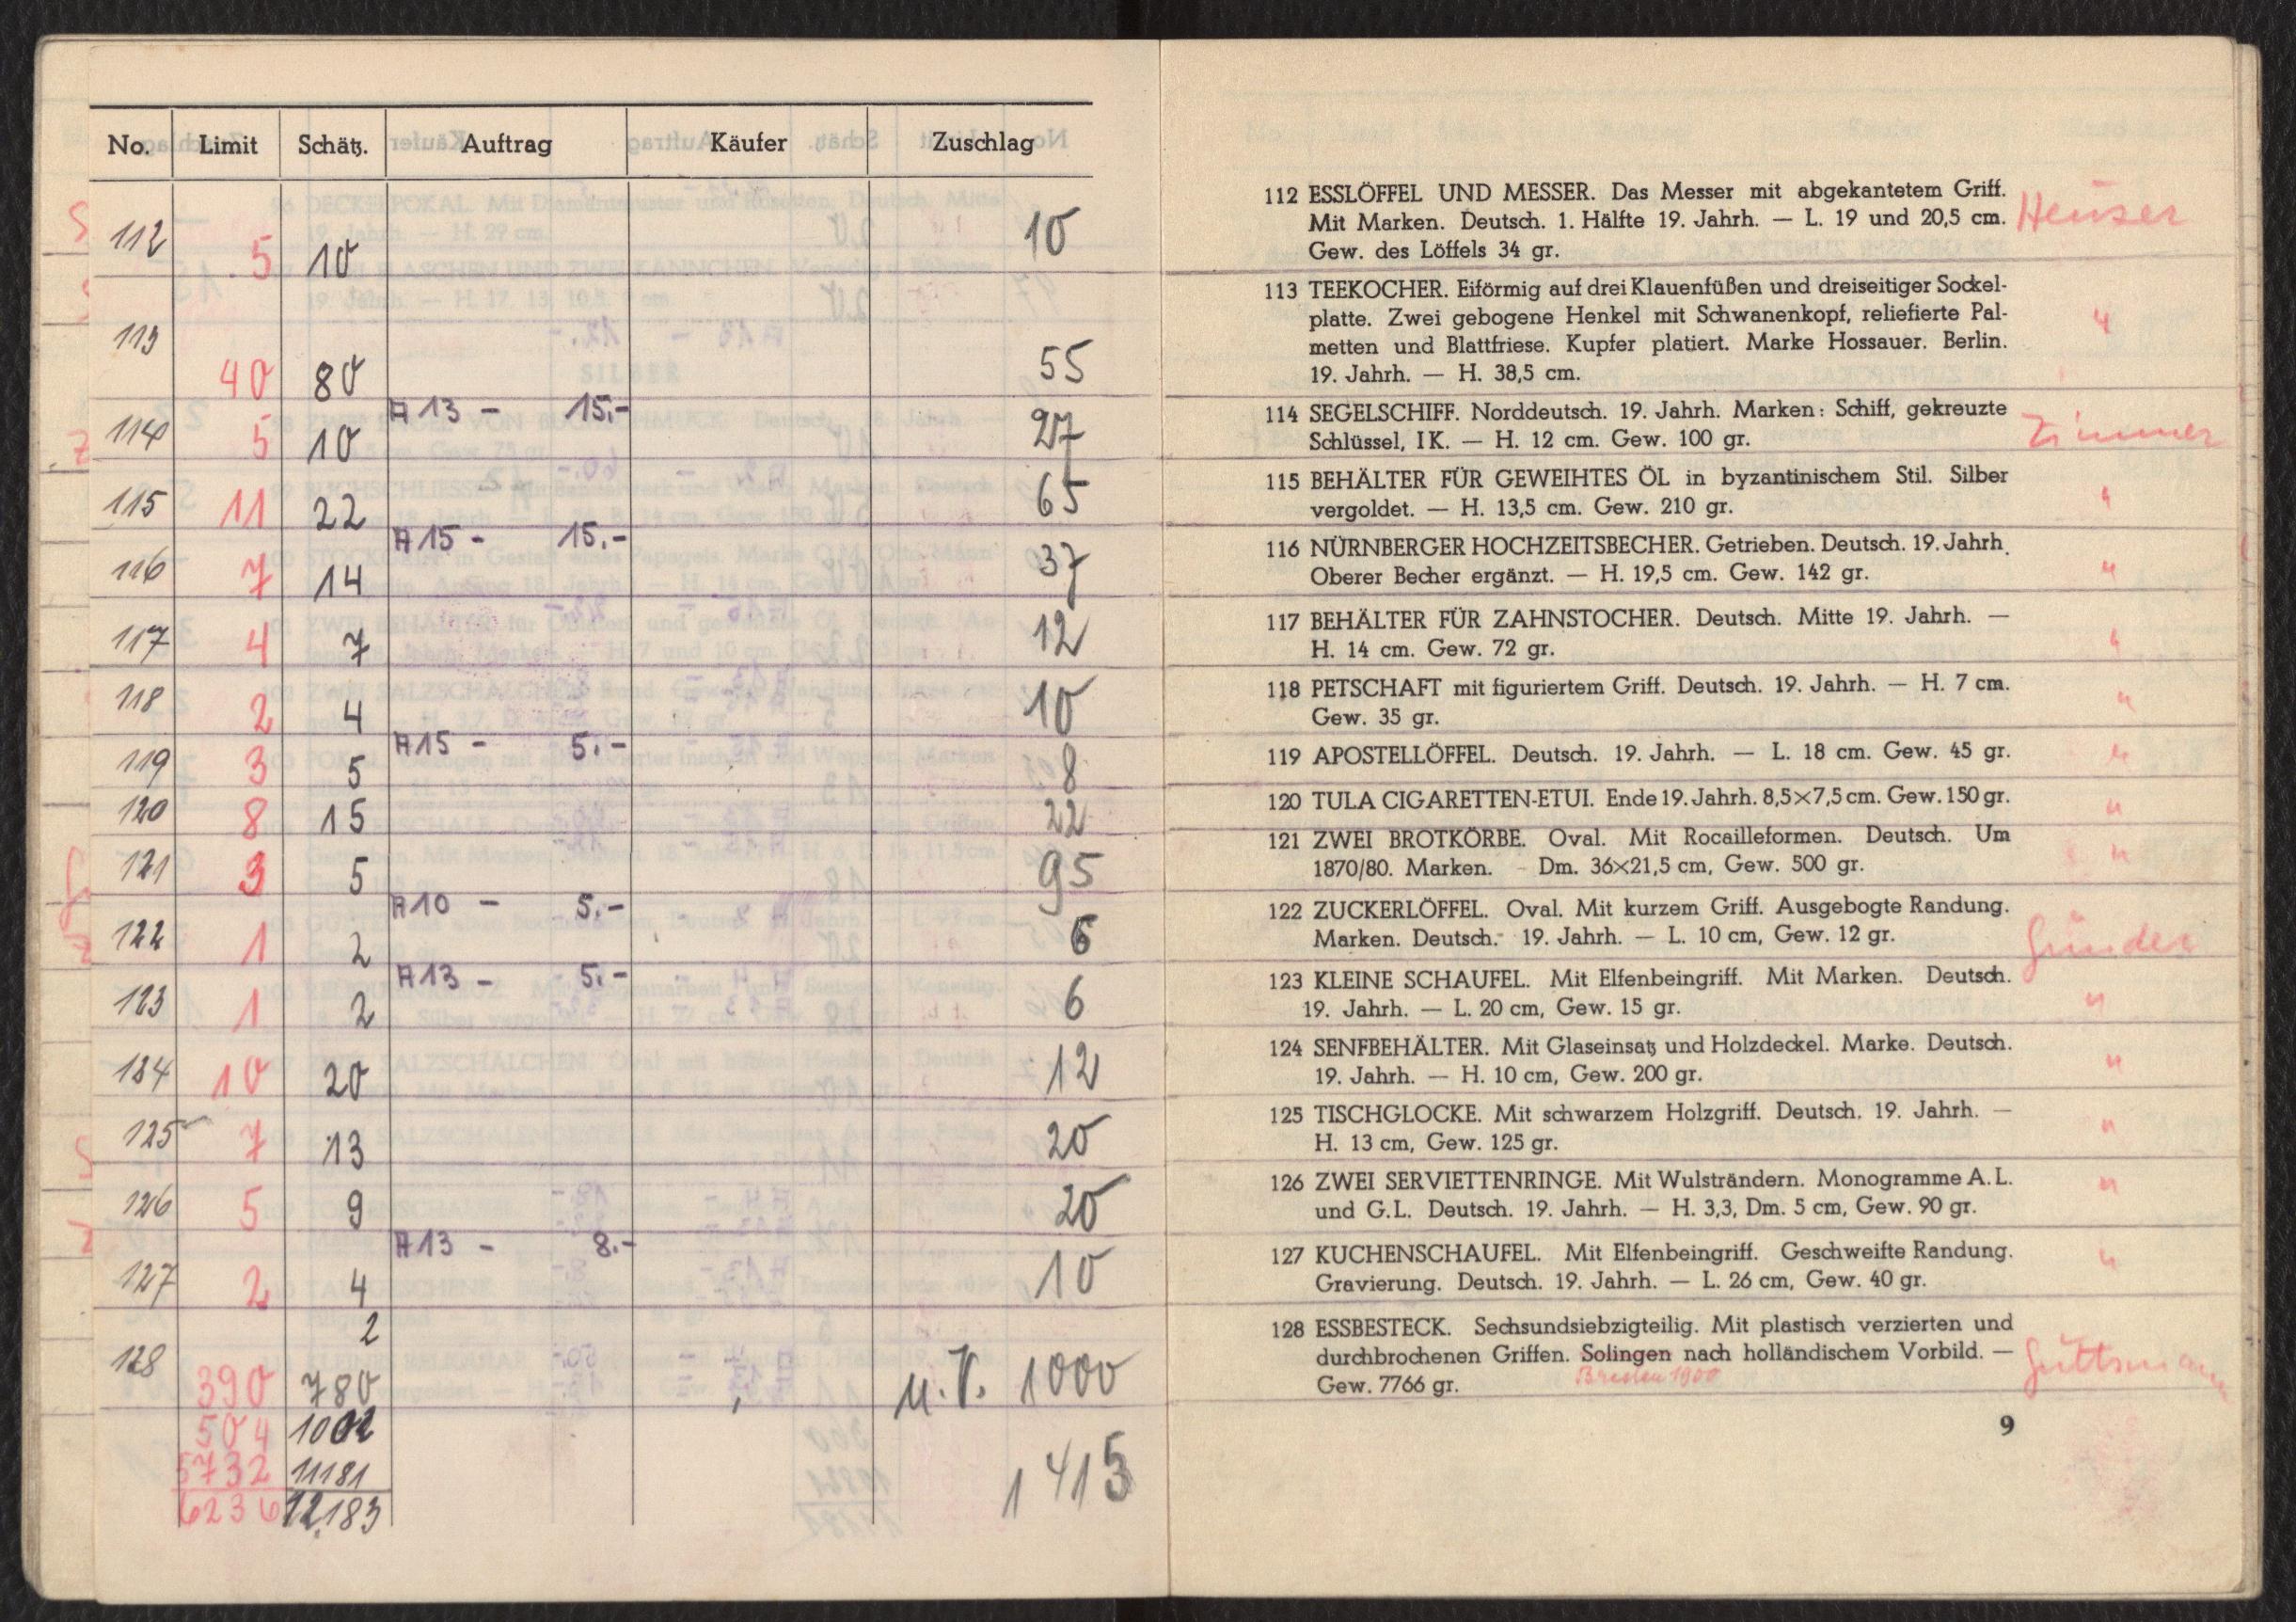 No. Limit Schätz. Auftrag Käufer Zuschlag
112 5 10 10
113 40 80 55
A 13 - 15.-
114 5 10 27
115 11 22 65
A 15 - 15.-
116 7 14 37
117 4 7 12
118 2 4 10
A 15 - 5.-
119 3 5 8
120 8 15 22
121 3 5 95
A 10 - 5.-
122 1 2 6
A 13 - 5.-
123 1 2 6
124 10 20 12
125 7 13 20
126 5 9 20
A 13 - 8.-
127 2 4 10
2
128 390 780 u. V. 1000
504 1002
5732 11181
6236 12.183
1413
112 ESSLÖFFEL UND MESSER. Das Messer mit abgekantetem Griff.
Mit Marken. Deutsch. 1. Hälfte 19. Jahrh. — L. 19 und 20,5 cm. Heuser
Gew. des Löffels 34 gr.
113 TEEKOCHER. Eiförmig auf drei Klauenfüßen und dreiseitiger Sockel-
platte. Zwei gebogene Henkel mit Schwanenkopf, reliefierte Pal- "
metten und Blattfriese. Kupfer platiert. Marke Hossauer. Berlin.
19. Jahrh. — H. 38,5 cm.
114 SEGELSCHIFF. Norddeutsch. 19. Jahrh. Marken: Schiff, gekreuzte
Schlüssel, I K. — H. 12 cm. Gew. 100 gr. Zimmer
115 BEHÄLTER FÜR GEWEIHTES ÖL in byzantinischem Stil. Silber
vergoldet. — H. 13,5 cm. Gew. 210 gr. "
116 NÜRNBERGER HOCHZEITSBECHER. Getrieben. Deutsch. 19. Jahrh.
Oberer Becher ergänzt. — H. 19,5 cm. Gew. 142 gr. "
117 BEHÄLTER FÜR ZAHNSTOCHER. Deutsch. Mitte 19. Jahrh. —
H. 14 cm. Gew. 72 gr. "
118 PETSCHAFT mit figuriertem Griff. Deutsch. 19. Jahrh. — H. 7 cm.
Gew. 35 gr. "
119 APOSTELLÖFFEL. Deutsch. 19. Jahrh. — L. 18 cm. Gew. 45 gr. "
120 TULA CIGARETTEN-ETUI. Ende 19. Jahrh. 8,5×7,5 cm. Gew. 150 gr. "
121 ZWEI BROTKÖRBE. Oval. Mit Rocailleformen. Deutsch. Um
1870/80. Marken. - Dm. 36×21,5 cm, Gew. 500 gr. "
122 ZUCKERLÖFFEL. Oval. Mit kurzem Griff. Ausgebogte Randung.
Marken. Deutsch. 19. Jahrh. — L. 10 cm, Gew. 12 gr.
123 KLEINE SCHAUFEL. Mit Elfenbeingriff. Mit Marken. Deutsch.
19. Jahrh. — L. 20 cm, Gew. 15 gr. "
124 SENFBEHÄLTER. Mit Glaseinsatz und Holzdeckel. Marke. Deutsch.
19. Jahrh. — H. 10 cm, Gew. 200 gr. "
125 TISCHGLOCKE. Mit schwarzem Holzgriff. Deutsch. 19. Jahrh. —
H. 13 cm, Gew. 125 gr. "
126 ZWEI SERVIETTENRINGE. Mit Wulsträndern. Monogramme A. L.
und G. L. Deutsch. 19. Jahrh. — H. 3,3, Dm. 5 cm, Gew. 90 gr. "
127 KUCHENSCHAUFEL. Mit Elfenbeingriff. Geschweifte Randung.
Gravierung. Deutsch. 19. Jahrh. — L. 26 cm, Gew. 40 gr. "
128 ESSBESTECK. Sechsundsiebzigteilig. Mit plastisch verzierten und
durchbrochenen Griffen. Solingen nach holländischem Vorbild. — Guttsmann
Gew. 7766 gr. Breslau 1900
9